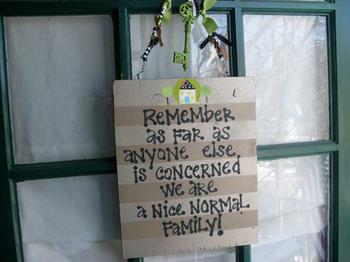 ReMeMBeR
as faR as
anyone else
is concerned
we are
a Nice NORMAL
FAMiLy!